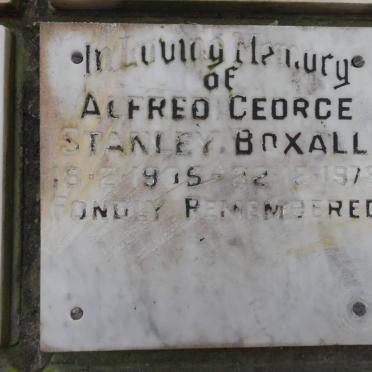 In Loving Memory
of
ALFRED GEORGE
STANLEY BOXALL
FONDLY REMEMBERED